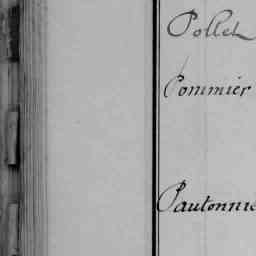 Pollet
Pommier
Pautonnie